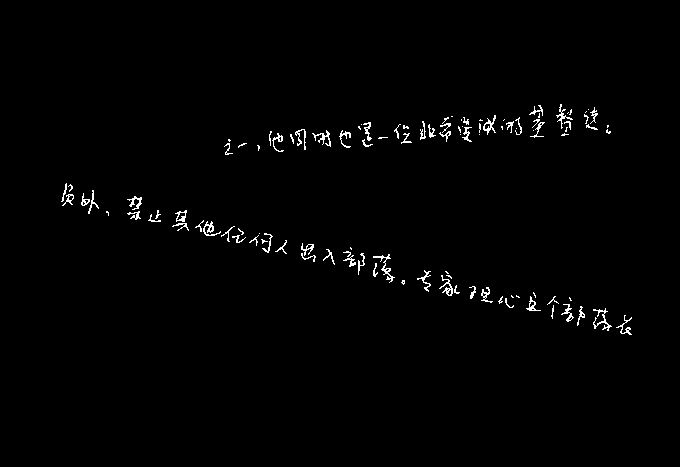 之一,他同时也是一位非常虔诚的基督徒。
员外、禁止其他任何人出入部落。专家担心这个部落长